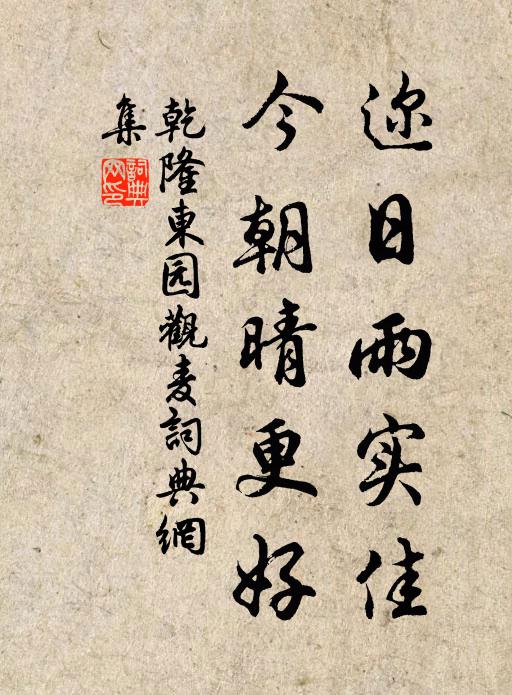 迩日雨实佳
今朝晴更好
乾隆東园觀麦詞典網
集
詞典
网印